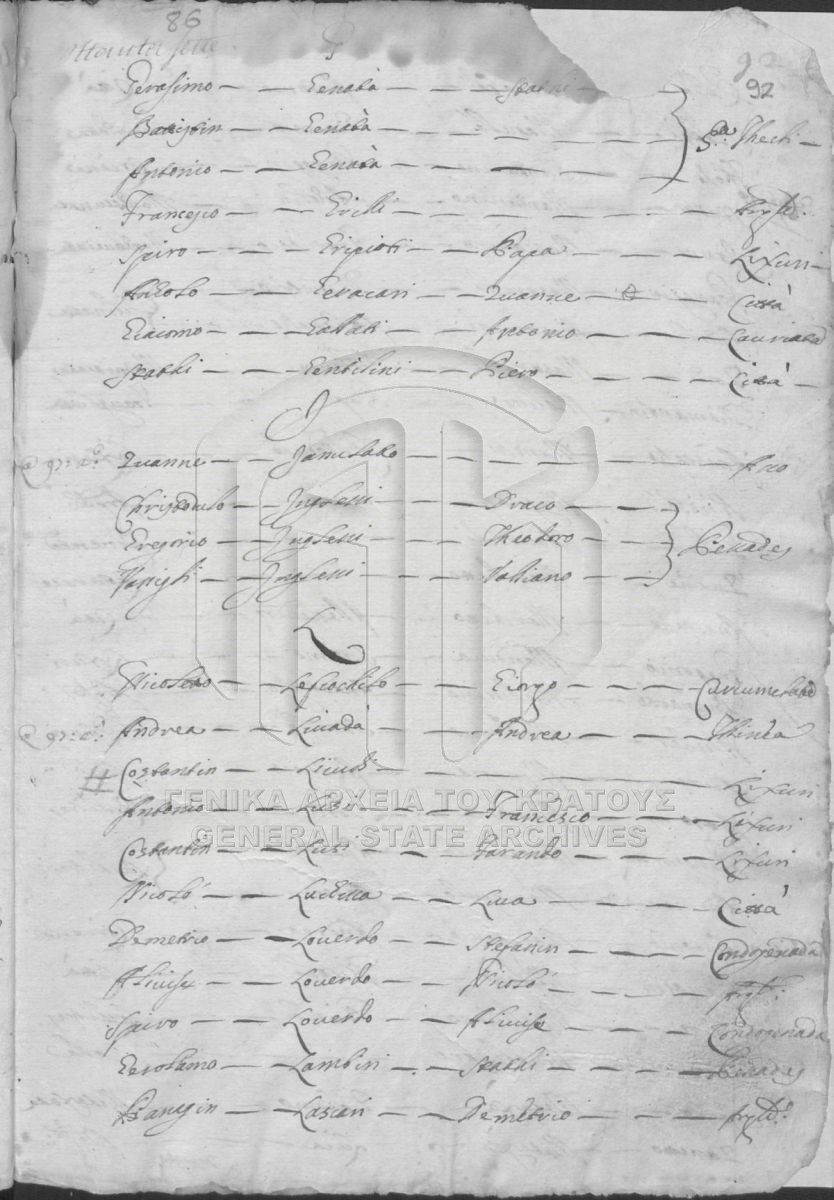 86
92
92
G
Gerasimo — Genatà — Stathi
Battistin — Genatà — S.ta Thecli
Antonio — Genatà
Francesco — Grilli — Arg.li
Spiro — Gripioti — Papa — Lixuri
Anzolo — Geracari — Zuanne — Città
Giacomo — Gallati — Antonio — Cauriata
Stathi — Gentilini — Piero — Città
J
Zuanne — Janulato — Aco
Christodulo — Inglessi — Draco
Gregorio — Inglessi — Theodoro — Penades
Vassigli — Inglessi — Valliano
L
Nicoletto — Giorgo
Andrea — Livadà — Andrea — Thinea
Costantin — Licudi — Lixuri
Antonio — Lusi — Francesco — Lixuri
Costantin — Lusi — Farando — Lixuri
Nicolò — Luchissa — Luca — Città
Demetrio — Loverdo — Stefanin — Condogenada
Alvise — Loverdo — Nicolò — Arg.li
Spiro — Loverdo — Alvise — Condogenada
Gerolamo — Lambiri — Stathi — Penades
Panagin — Lascari — Demetrio — Arg.li
ΓΕΝΙΚΑ ΑΡΧΕΙΑ ΤΟΥ ΚΡΑΤΟΥΣ
GENERAL STATE ARCHIVES